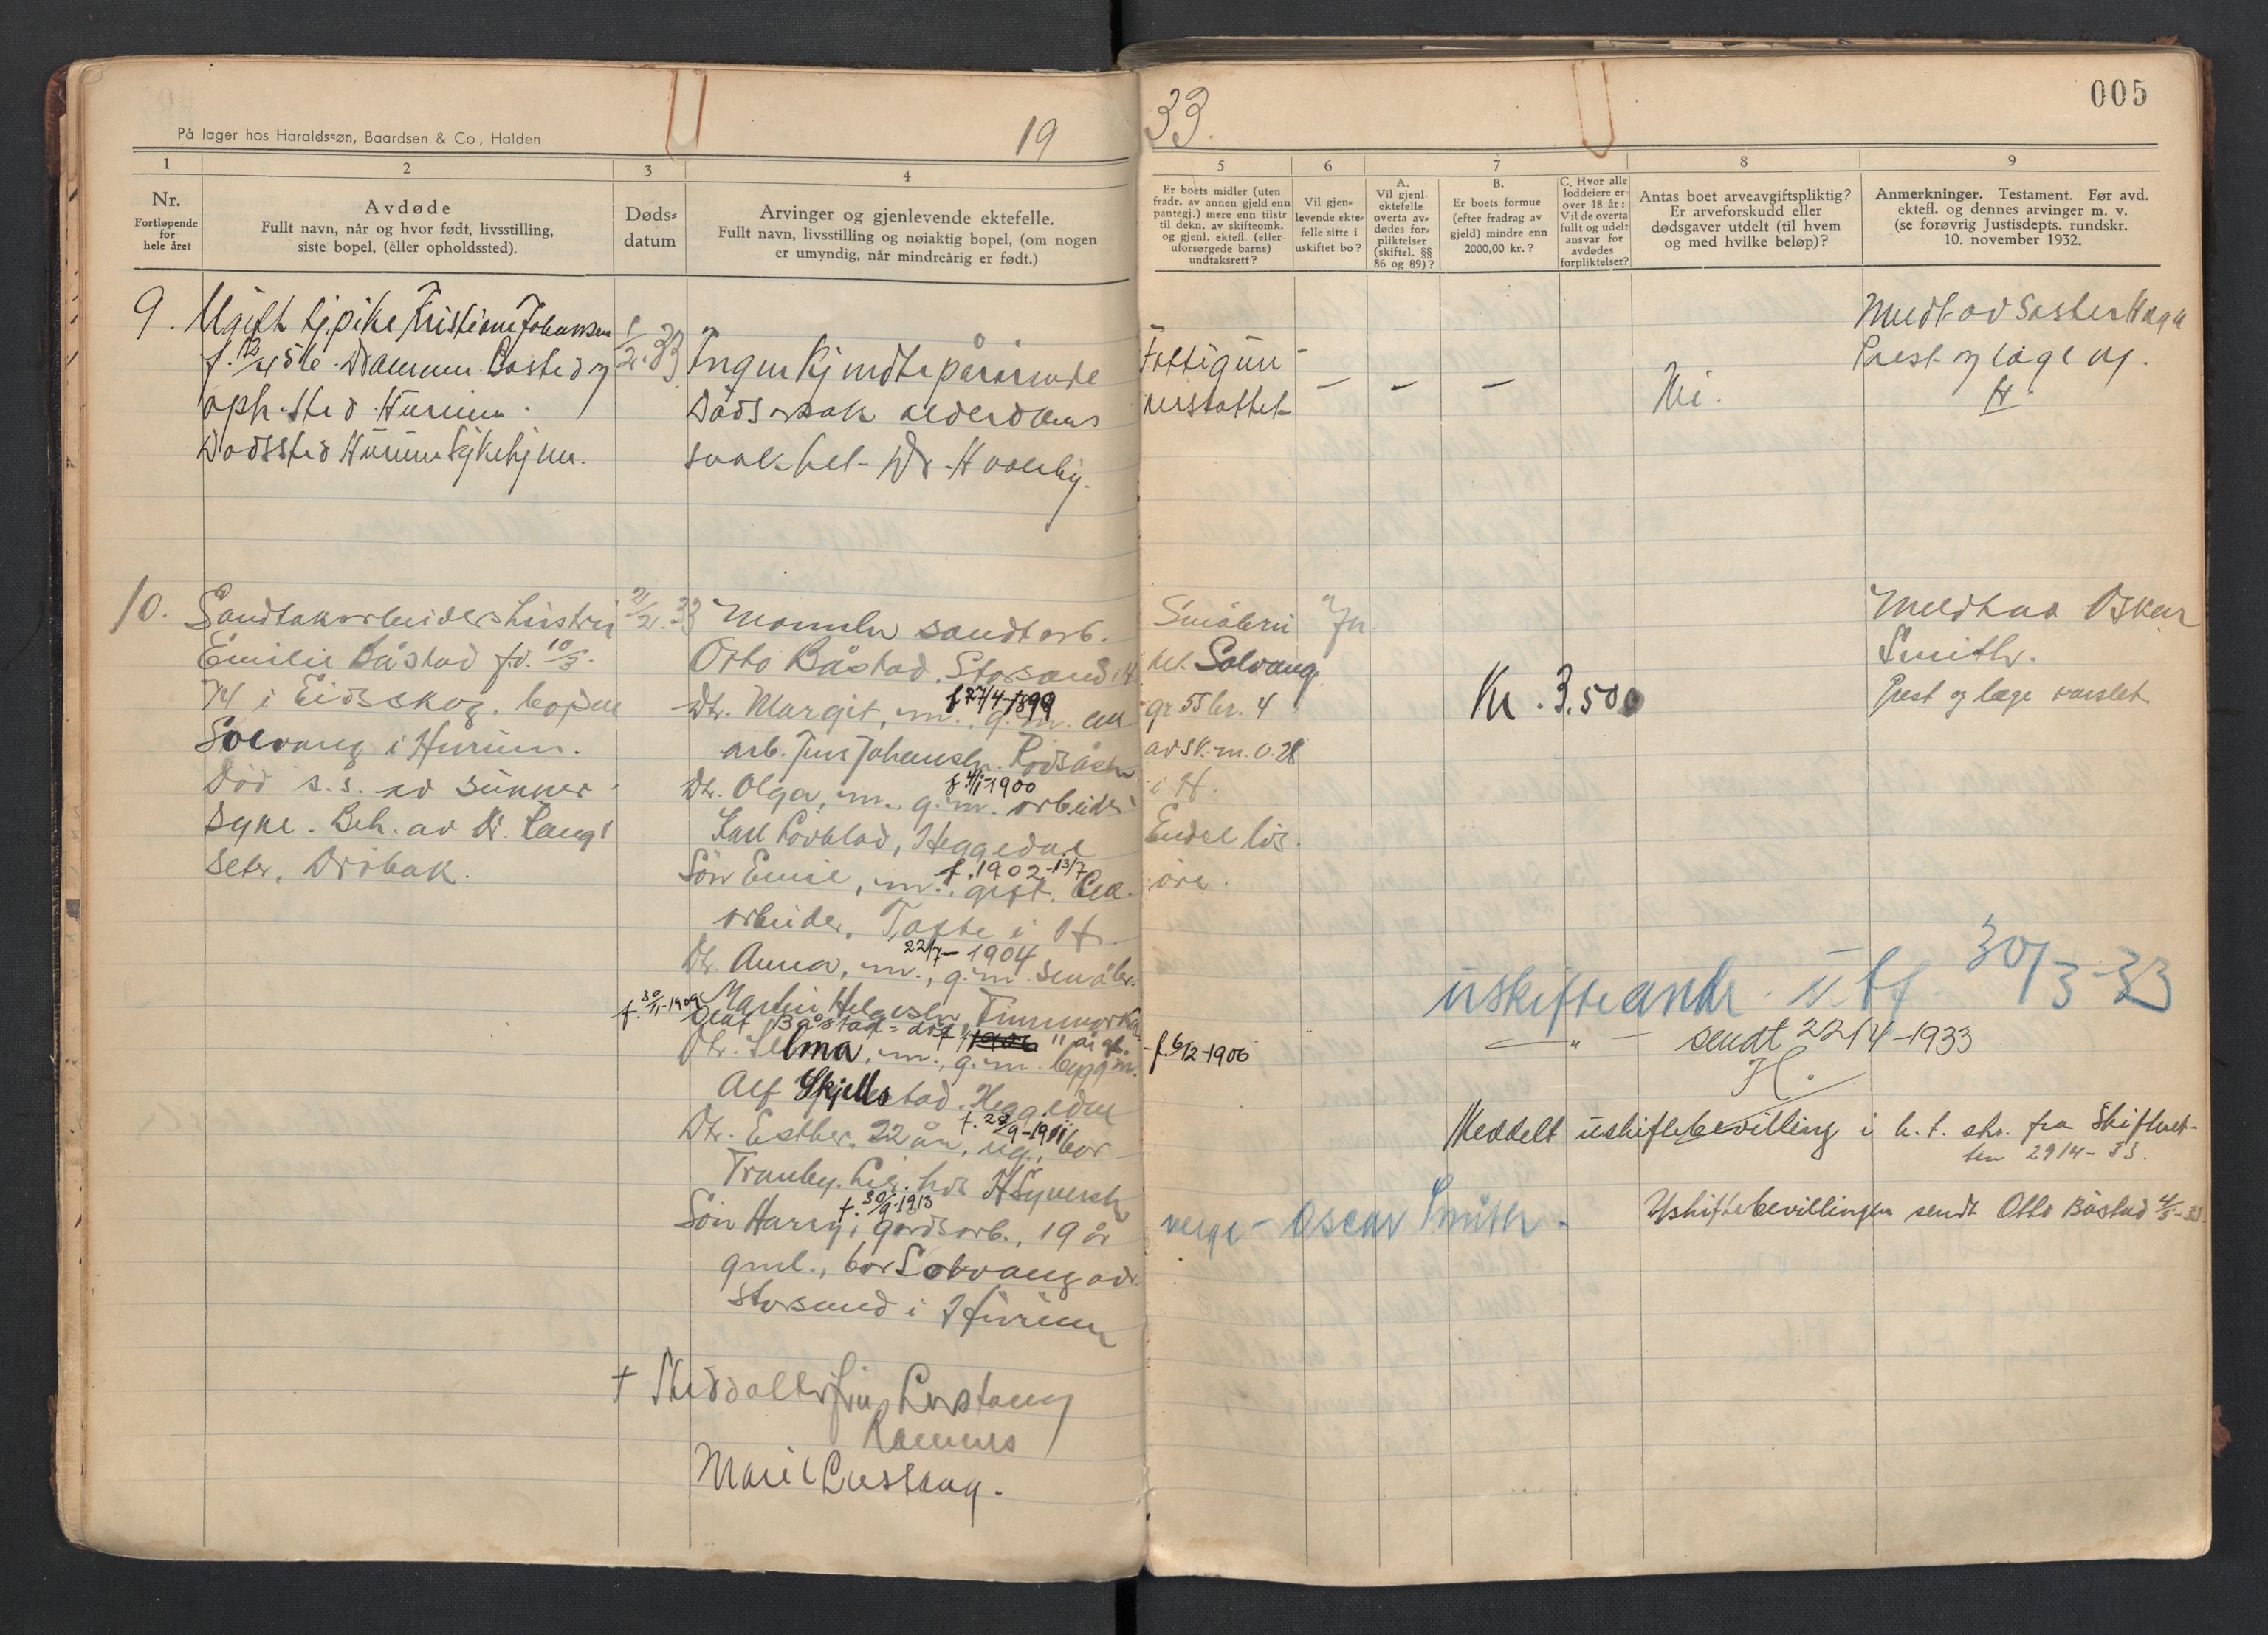 005
På lager hos Haraldssøn, Baardsen & Co, Halden
19
33.
1
2
3
4
5
6
7
8
9
Nr.
Fortløpende
for
hele året
Avdøde
Fullt navn, når og hvor født, livsstilling,
siste bopel, (eller opholdssted).
Døds-
datum
Arvinger og gjenlevende ektefelle.
Fullt navn, livsstilling og nøiaktig bopel, (om nogen
er umyndig, når mindreårig er født.)
Er boets midler (uten
fradr. av annen gjeld enn
pantegj.) mere enn tilstr
til dekn. av skifteomk.
og gjenl. ektefl. (eller
uforsørgede barns)
undtaksrett?
Vil gjen-
levende ekte-
felle sitte i
uskiftet bo?
A.
Vil gjenl.
ektefelle
overta av-
dødes for-
pliktelser
(skiftel. §§
86 og 89)?
B.
Er boets formue
(efter fradrag av
gjeld) mindre enn
2000,00 kr.?
C. Hvor alle
loddeiere er
over 18 år:
Vil de overta
fullt og udelt
ansvar for
avdødes
forpliktelser?
Antas boet arveavgiftspliktig?
Er arveforskudd eller
dødsgaver utdelt (til hvem
og med hvilke beløp)?
Anmerkninger. Testament. Før avd.
ektefl. og dennes arvinger m. v.
(se forøvrig Justisdepts. rundskr.
10. november 1932.
9. Ugift tj.pike Kristiane Johansen
f. 12/4 56. Drammen. Bosted og
oph.sted Hurum.
Dødssted Hurum Sykehjem.
1/2.33
Ingen kjendte pårørende
Dødsorsak alderdoms
svakhet - Dr.
Fattigun
derstøttet
— — —
Nei.
Meldt av Søster
Prest og læge
H.
10. Sandtakarbeiders hustru
Emilie Båstad fd. 10/3-
74 i Eidsskog. bopæl
Solvang i Hurum.
Død s.s. av sukker
syke. Beh. av Dr. Lang
seter, Drøbak.
2/2.33
Mannen sandt.arb.
Otto Båstad. Storsand i H
f 27/4-1899
Dtr. Margit, m., g.m. cell
arb. Jens Johansen. Rødsåsen
f 4/1-1900
Dtr. Olga, m., g.m. arbeider
Karl Lövblad, Heggedal
f. 1902-13/7
Søn Emil, m., gift. Cell.
arbeider, Tofte i H.
22/7-1904
Dtr. Anna, m., g.m. småbr.
Martin Helgesen
f. 30/11-1909 Olaf Båstad = død 1906 11 år gl.
Dtr. Selma, m., g.m. bygg.m. - f. 6/2-1906
Alf Skjellestad. Heggedal
f. 28/9-1911
Dtr. Esther. 22 år, ug., bor
Tranby. Lier. hos H Syversen
f. 30/9-1913
Søn Harry, gårdsarb., 19 år
gml., bor Solvang adr.
Storsand i Hurum
Småbru
ket Solvang
gr 55 br. 4
av sk.m. 0.28
i H.
Endel løs
øre.
Ja.
Kr. 3.500
Meldt av Oskar
Smith.
Prest og læge varslet
uskifteandr. utf. 30/3-33
— " — sendt 22/4-1933
H.
Meddelt uskiftebevilling i h.t. skr. fra Skifteret-
ten 29/4-33.
verge - Oscar Smith.
Uskiftebevillingen sendt Otto Båstad 4/5-33.
+
Marie